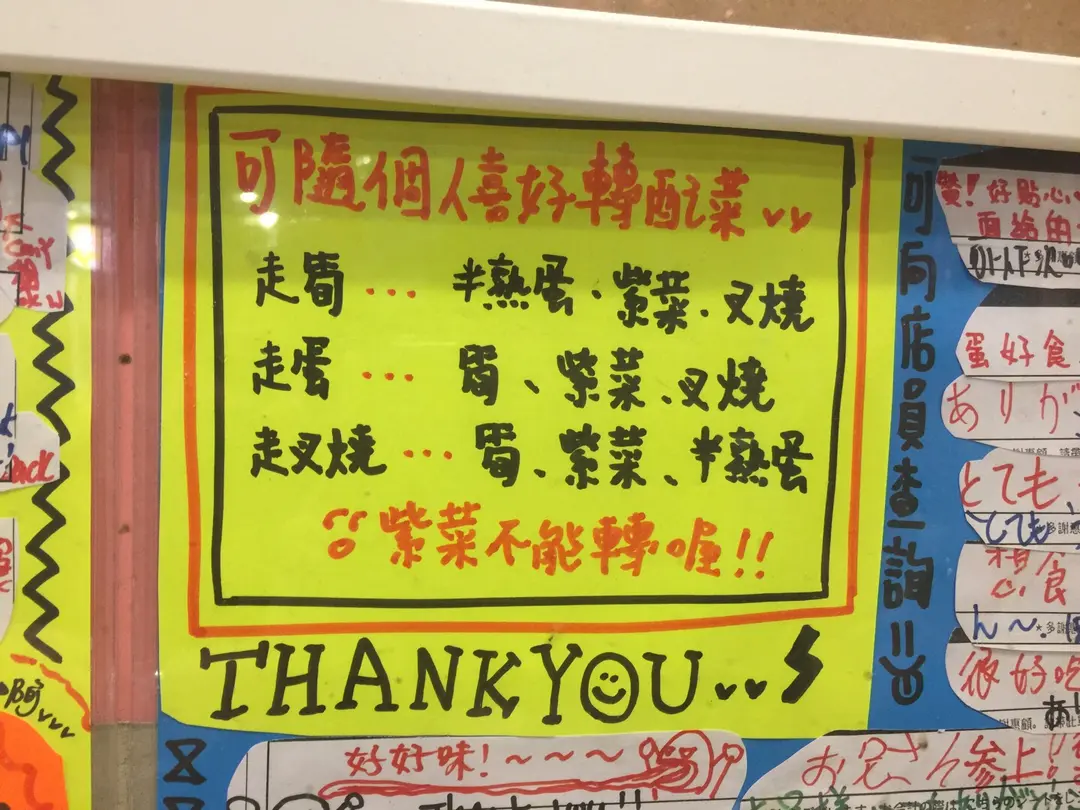 可隨個人喜好轉配菜
走筍 ... 半熟蛋、紫菜、叉燒
走蛋 ... 筍、紫菜、叉燒
走叉燒 ... 筍、紫菜、半熟蛋
紫菜不能轉喔!!
THANK YOU
可向店員查詢
好點心
蛋好食
ありが
とても
とても
想食
ん～.
很好吃
好好味!~~~
お兄さん参上!!